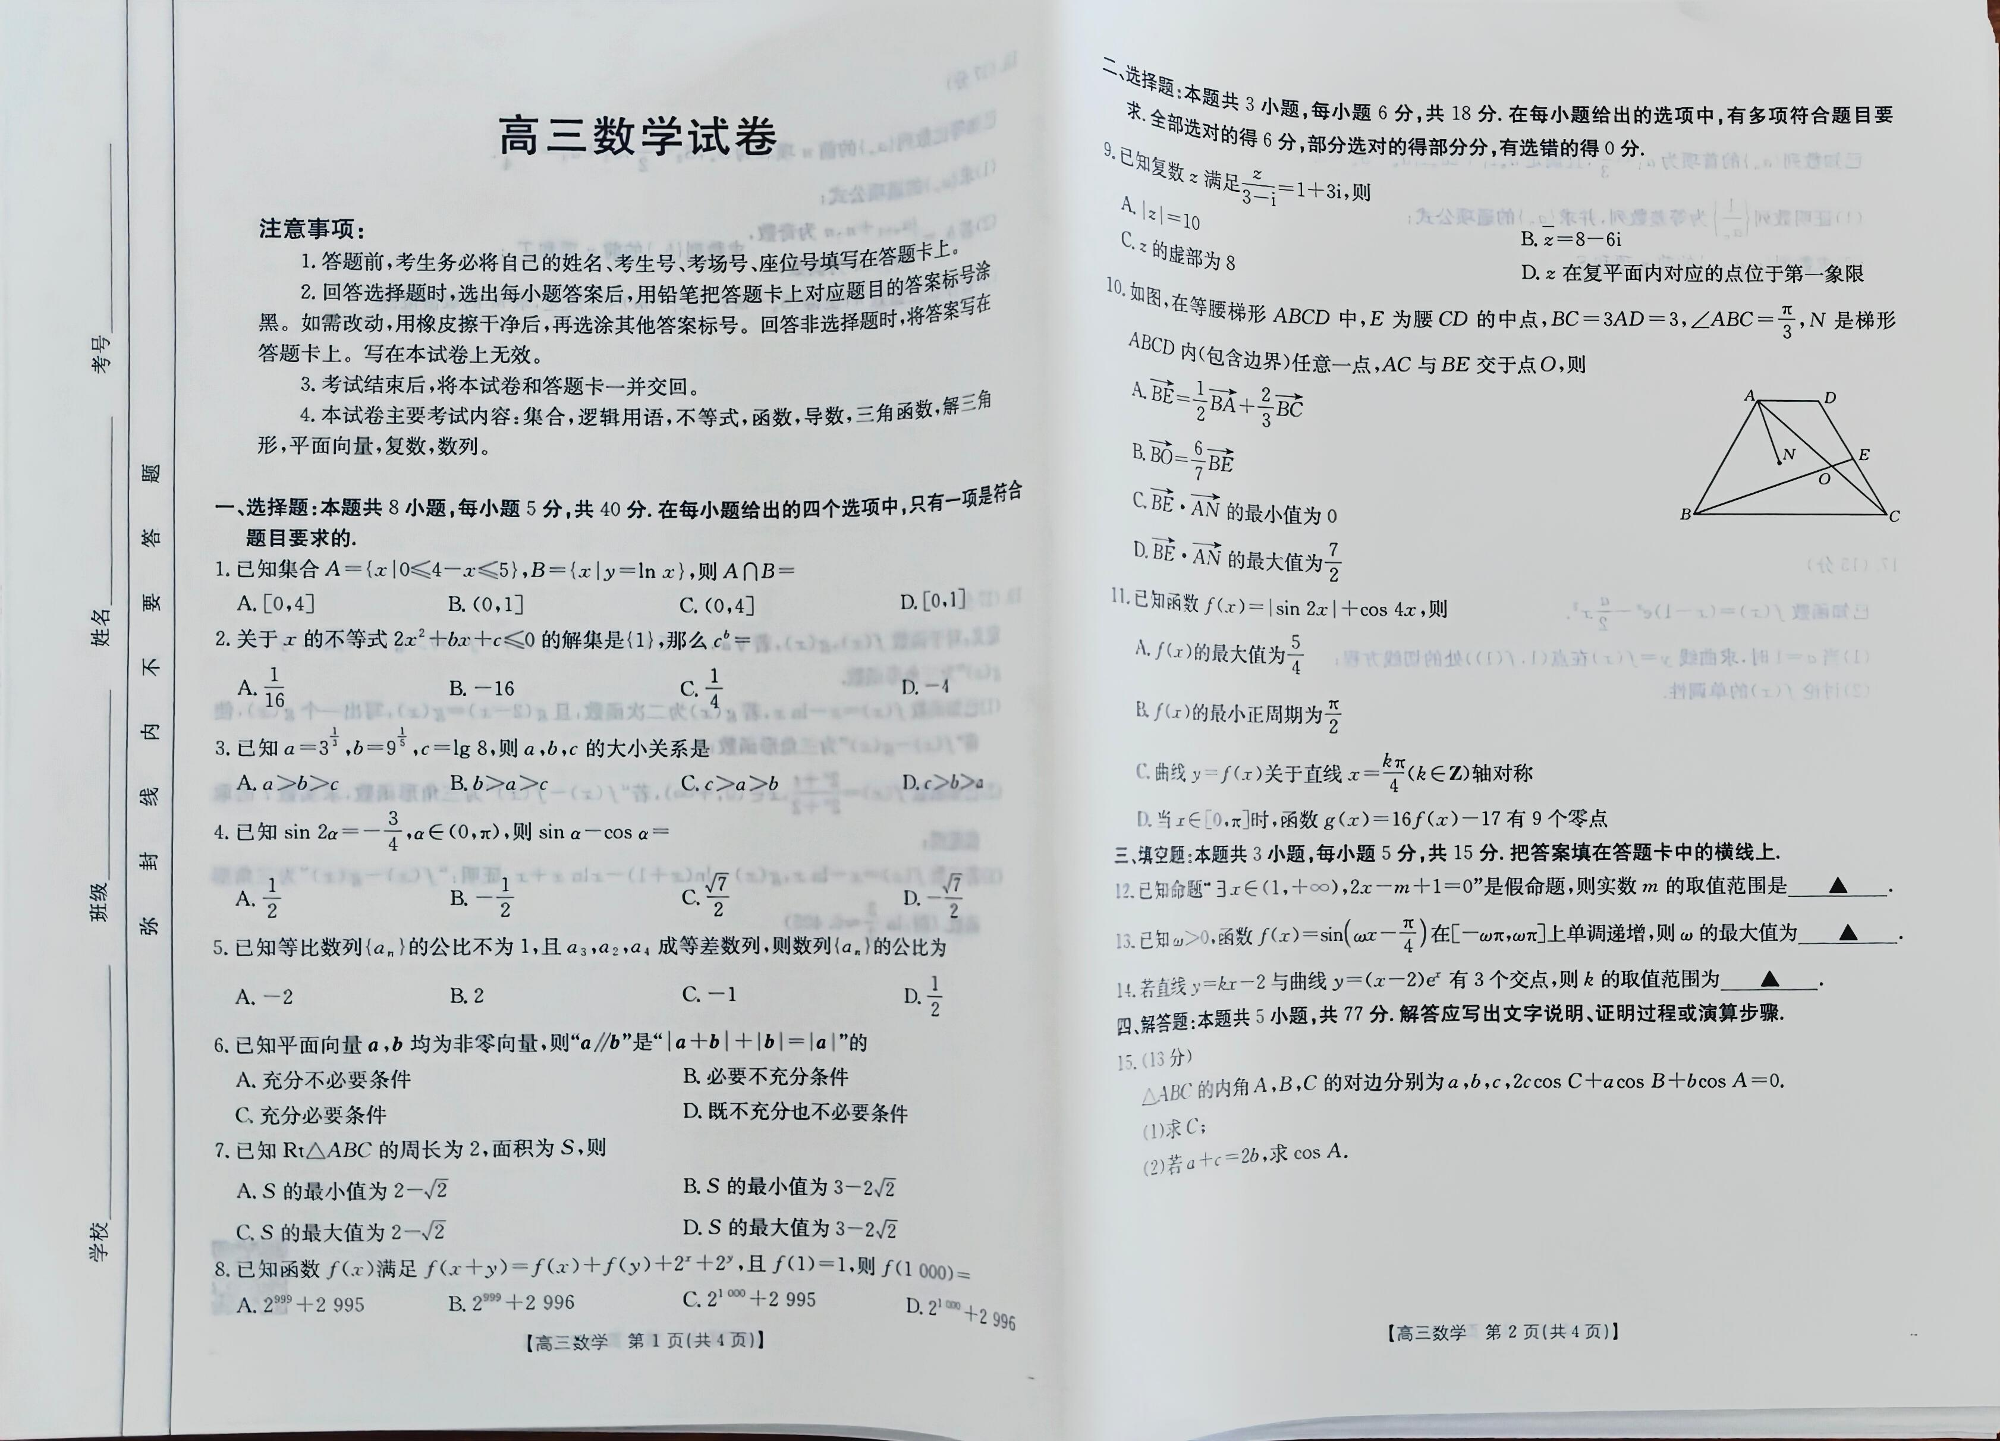 学校
班级
姓名
考号
弥 封 线 内 不 要 答 题
高三数学试卷
注意事项:
1. 答题前,考生务必将自己的姓名、考生号、考场号、座位号填写在答题卡上。
2. 回答选择题时,选出每小题答案后,用铅笔把答题卡上对应题目的答案标号涂
黑。如需改动,用橡皮擦干净后,再选涂其他答案标号。回答非选择题时,将答案写在
答题卡上。写在本试卷上无效。
3. 考试结束后,将本试卷和答题卡一并交回。
4. 本试卷主要考试内容:集合,逻辑用语,不等式,函数,导数,三角函数,解三角
形,平面向量,复数,数列。
一、选择题:本题共 8 小题,每小题 5 分,共 40 分. 在每小题给出的四个选项中,只有一项是符合
题目要求的.
1. 已知集合 A={x|0≤4-x≤5},B={x|y=ln x},则 A∩B=
A. [0,4] B. (0,1] C. (0,4] D. [0,1]
2. 关于 x 的不等式 2x²+bx+c≤0 的解集是{1},那么 c^b=
A. 1/16 B. -16 C. 1/4 D. -4
3. 已知 a=3^(1/3),b=9^(1/5),c=lg 8,则 a,b,c 的大小关系是
A. a>b>c B. b>a>c C. c>a>b D. c>b>a
4. 已知 sin 2α=-3/4,α∈(0,π),则 sin α-cos α=
A. 1/2 B. -1/2 C. √7/2 D. -√7/2
5. 已知等比数列{aₙ}的公比不为 1,且 a₃,a₂,a₄ 成等差数列,则数列{aₙ}的公比为
A. -2 B. 2 C. -1 D. 1/2
6. 已知平面向量 a,b 均为非零向量,则“a∥b”是“|a+b|+|b|=|a|”的
A. 充分不必要条件 B. 必要不充分条件
C. 充分必要条件 D. 既不充分也不必要条件
7. 已知 Rt△ABC 的周长为 2,面积为 S,则
A. S 的最小值为 2-√2 B. S 的最小值为 3-2√2
C. S 的最大值为 2-√2 D. S 的最大值为 3-2√2
8. 已知函数 f(x)满足 f(x+y)=f(x)+f(y)+2^x+2^y,且 f(1)=1,则 f(1 000)=
A. 2^999+2 995 B. 2^999+2 996 C. 2^1 000+2 995 D. 2^1 000+2 996
【高三数学 第 1 页(共 4 页)】
二、选择题:本题共 3 小题,每小题 6 分,共 18 分. 在每小题给出的选项中,有多项符合题目要
求. 全部选对的得 6 分,部分选对的得部分分,有选错的得 0 分.
9. 已知复数 z 满足 z/(3-i)=1+3i,则
A. |z|=10 B. z̄=8-6i
C. z 的虚部为 8 D. z 在复平面内对应的点位于第一象限
10. 如图,在等腰梯形 ABCD 中,E 为腰 CD 的中点,BC=3AD=3,∠ABC=π/3,N 是梯形
ABCD 内(包含边界)任意一点,AC 与 BE 交于点 O,则
A. BE→=1/2 BA→+2/3 BC→
B. BO→=6/7 BE→
C. BE→·AN→ 的最小值为 0
D. BE→·AN→ 的最大值为 7/2
A D
N E
O
B C
11. 已知函数 f(x)=|sin 2x|+cos 4x,则
A. f(x)的最大值为 5/4
B. f(x)的最小正周期为 π/2
C. 曲线 y=f(x)关于直线 x=kπ/4(k∈Z)轴对称
D. 当 x∈[0,π]时,函数 g(x)=16f(x)-17 有 9 个零点
三、填空题:本题共 3 小题,每小题 5 分,共 15 分. 把答案填在答题卡中的横线上.
12. 已知命题“∃x∈(1,+∞),2x-m+1=0”是假命题,则实数 m 的取值范围是 ▲ .
13. 已知 ω>0,函数 f(x)=sin(ωx-π/4)在[-ωπ,ωπ]上单调递增,则 ω 的最大值为 ▲ .
14. 若直线 y=kx-2 与曲线 y=(x-2)e^x 有 3 个交点,则 k 的取值范围为 ▲ .
四、解答题:本题共 5 小题,共 77 分. 解答应写出文字说明、证明过程或演算步骤.
15. (13 分)
△ABC 的内角 A,B,C 的对边分别为 a,b,c,2ccos C+acos B+bcos A=0.
(1)求 C;
(2)若 a+c=2b,求 cos A.
【高三数学 第 2 页(共 4 页)】